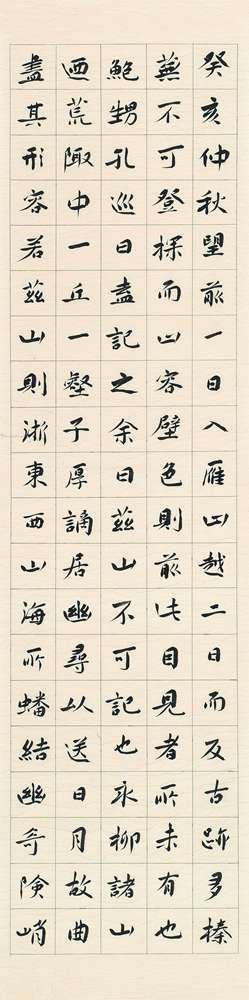 癸亥仲秋望前一日入雁山越二日而反古跡多榛
蕪不可登探而山容壁色則前此目見者所未有也
鮑甥孔巡曰盍記之余曰茲山不可記也永柳諸山
迺荒陬中一丘一壑子厚謫居幽尋以送日月故曲
盡其形容若茲山則浙東西山海所蟠結幽奇險峭